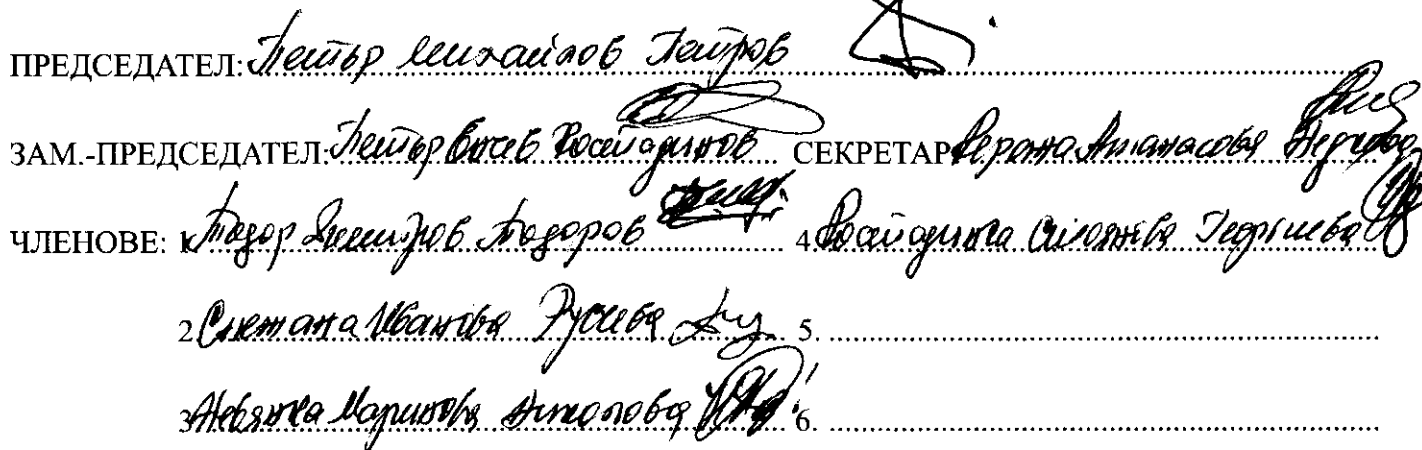 ПРЕДСЕДАТЕЛ: Петър Михайлов Петров
ЗАМ.-ПРЕДСЕДАТЕЛ: Петър Костадинов СЕКРЕТАР Атанасова
ЧЛЕНОВЕ: 1. Тодор Димитров Тодоров 4. Костадинка Стоянова Георгиева
2. Снежана Иванова Русева 5.
3. Невянка Маринова Николова 6.